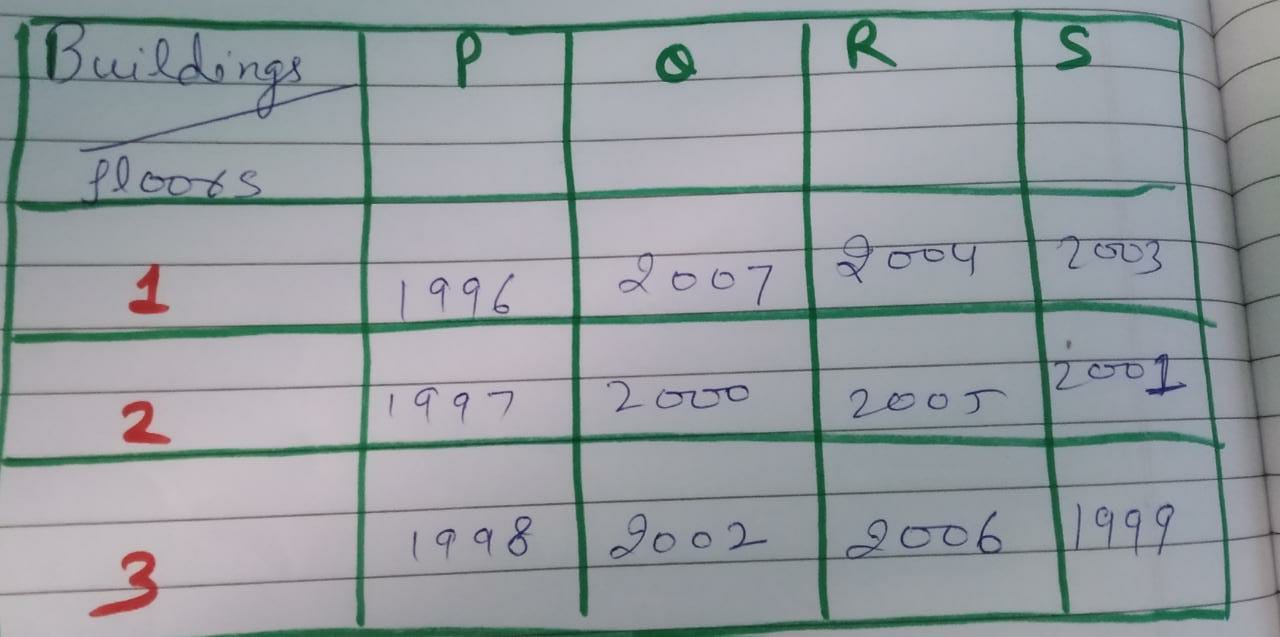 Buildings P Q R S
floors
1 1996 2007 2004 2003
2 1997 2000 2005 2001
3 1998 2002 2006 1999